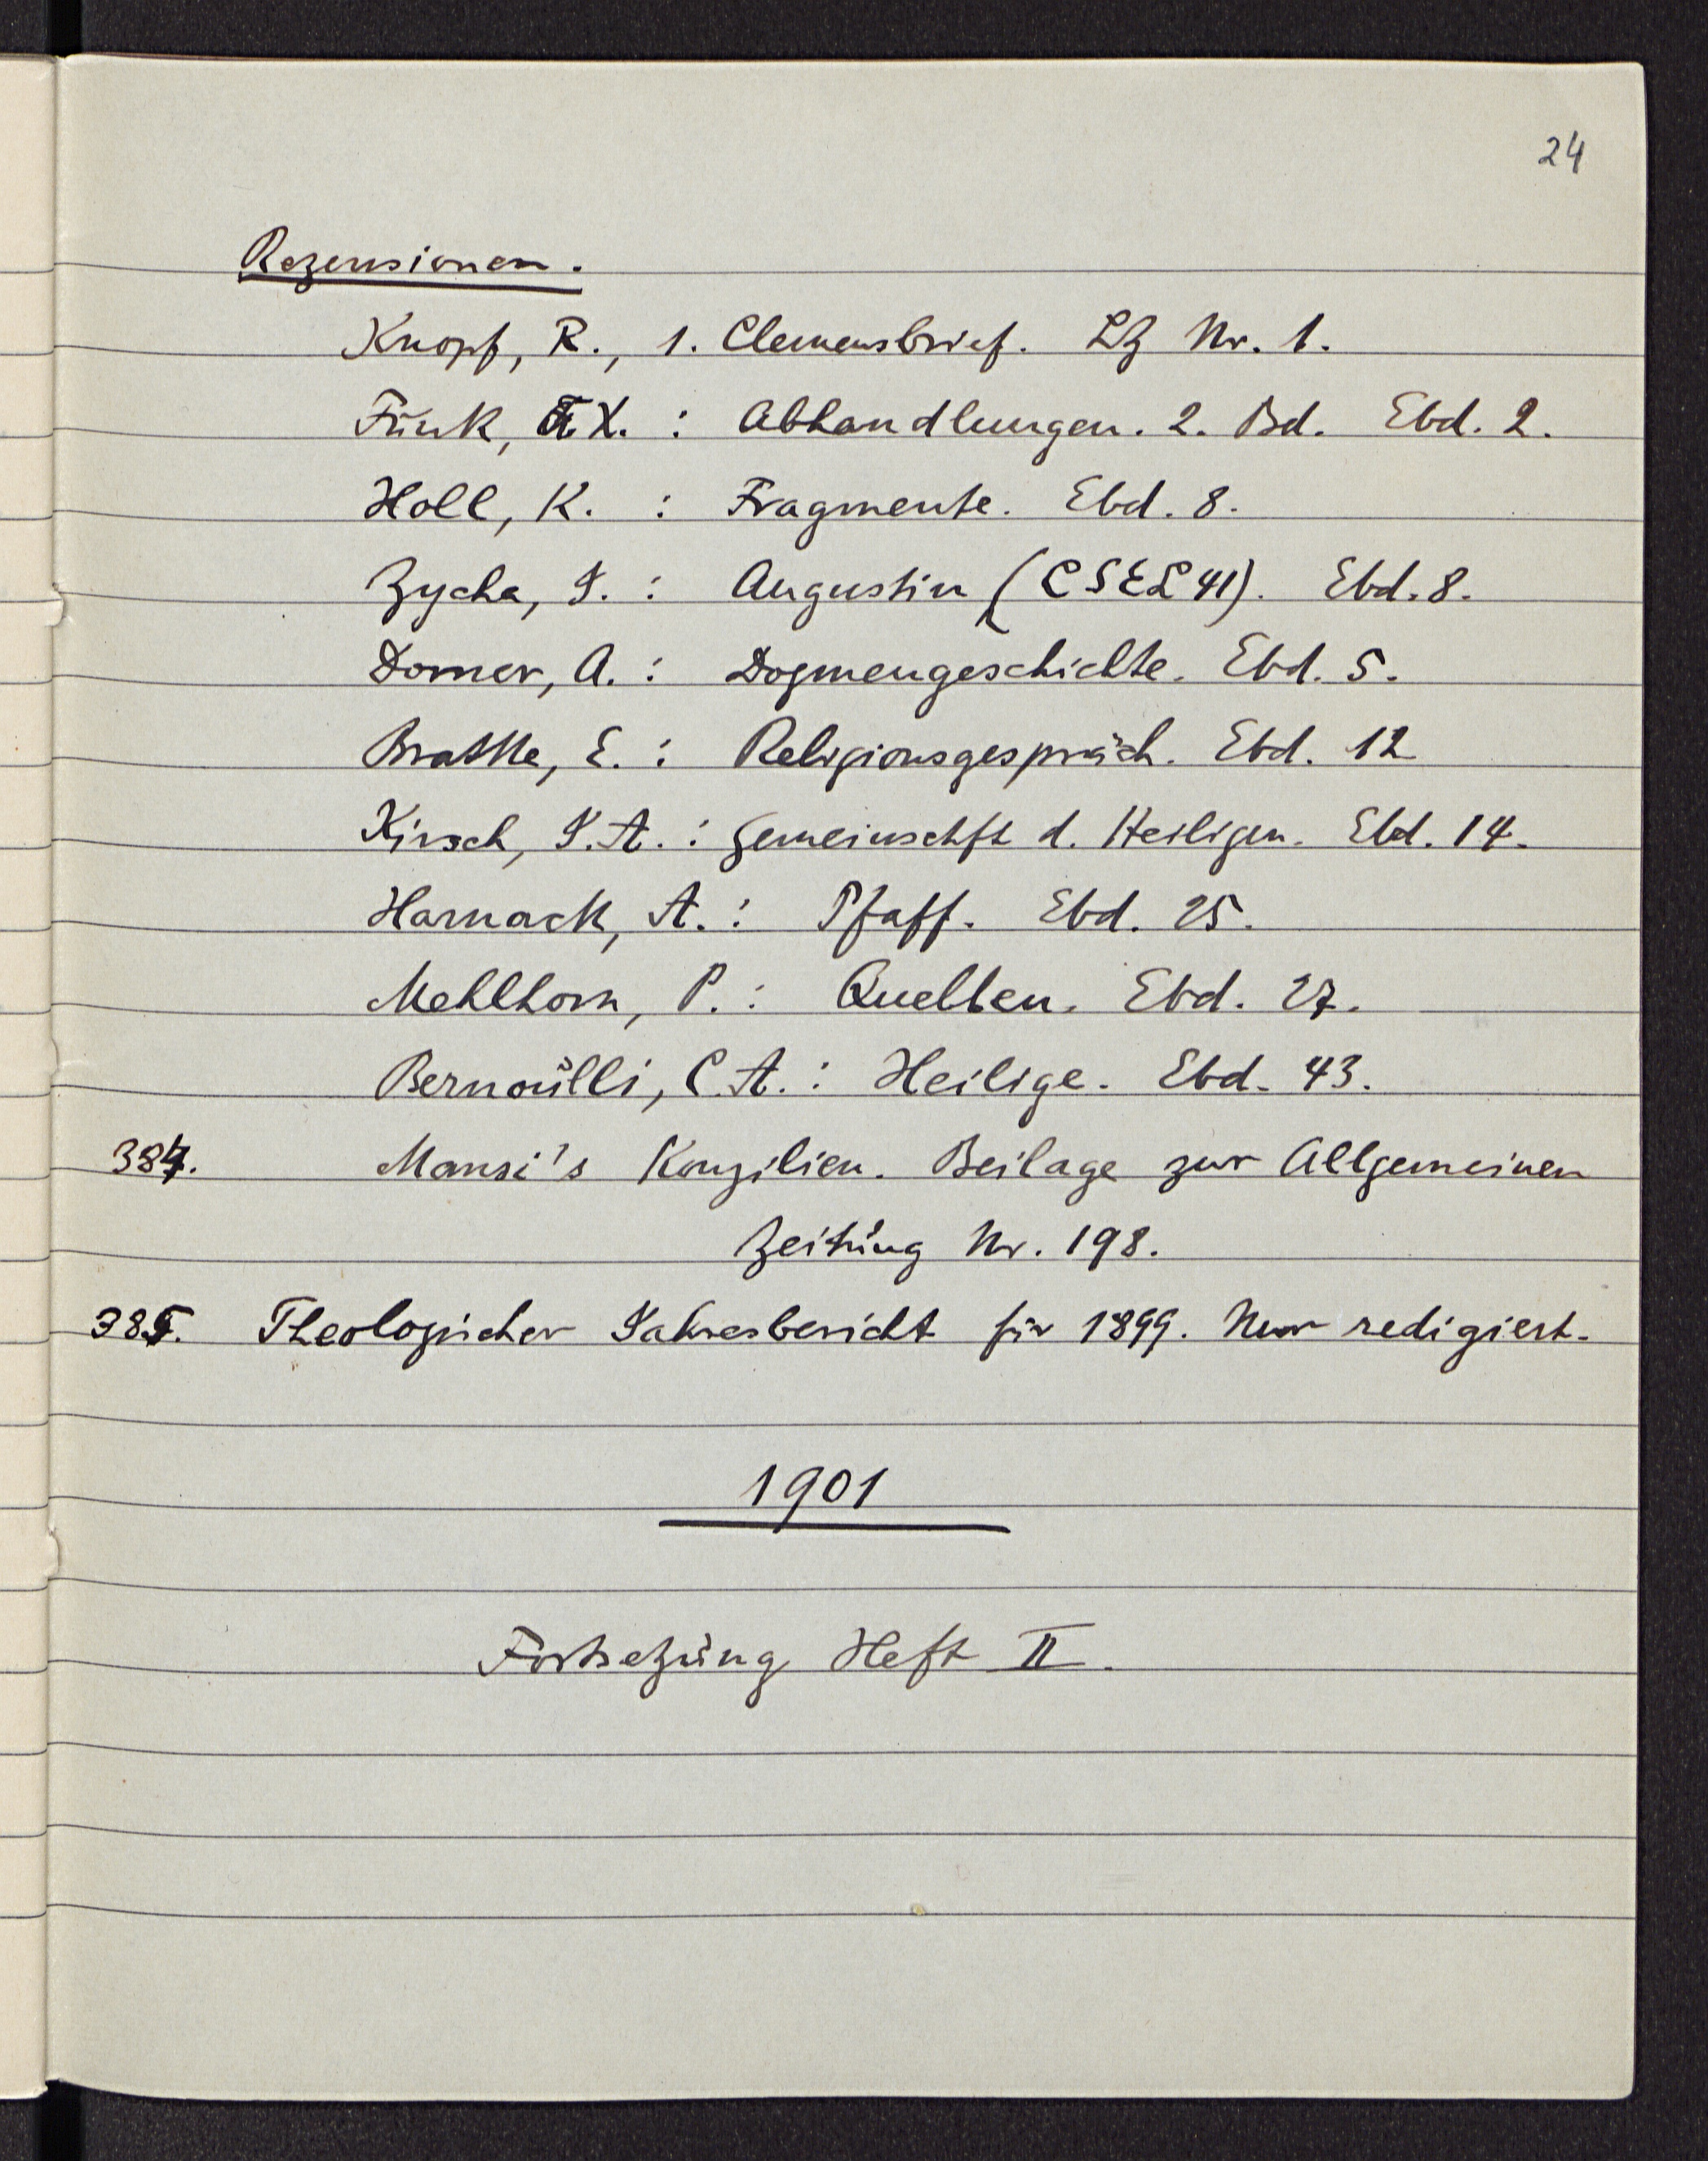 24
Rezensionen.
Knopf, R., 1. Clemensbrief. LZ Nr. 1.
Funk, F. X. : Abhandlungen. 2. Bd. Ebd. 2.
Holl, K. : Fragmente. Ebd. 8.
Zycha, J. : Augustin (CSEL 41). Ebd. 8.
Dorner, A. : Dogmengeschichte. Ebd. 5.
Bratke, E. : Religionsgespräch. Ebd. 12
Kirsch, J. A. : Gemeinschft d. Heiligen. Ebd. 14.
Harnack, A. : Pfaff. Ebd. 25.
Mehlhorn, P. : Quellen. Ebd. 27.
Bernoulli, C. A. : Heilige. Ebd. 43.
384. Mansi's Konzilien. Beilage zur Allgemeinen
Zeitung Nr. 198.
385. Theologischer Jahresbericht für 1899. Nur redigiert.
1901
Fortsetzung Heft II.